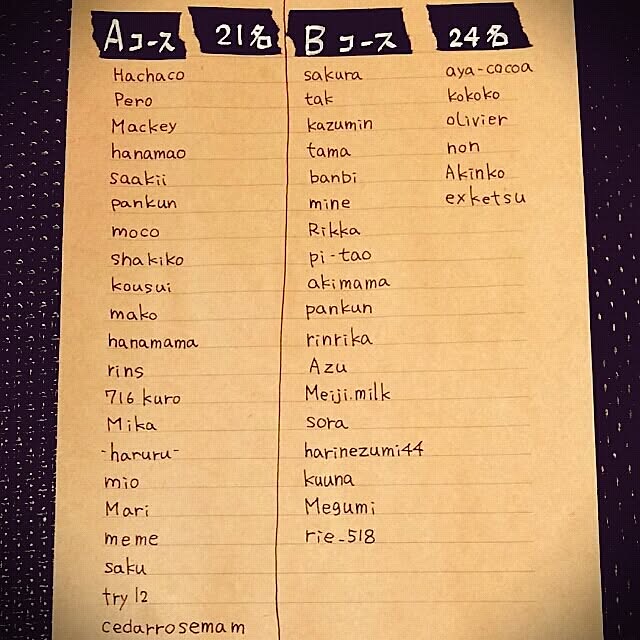 Aコース 21名
Hachaco
Pero
Mackey
hanamao
saakii
pankun
moco
shakiko
kousui
mako
hanamama
rins
716 kuro
Mika
-haruru-
mio
Mari
meme
saku
try12
cedarrosemam
Bコース 24名
sakura
tak
kazumin
tama
banbi
mine
Rikka
pi-tao
akimama
pankun
rinrika
Azu
Meiji.milk
sora
harinezumi44
kuuna
Megumi
rie_518
aya-cocoa
kokoko
olivier
non
Akinko
exketsu